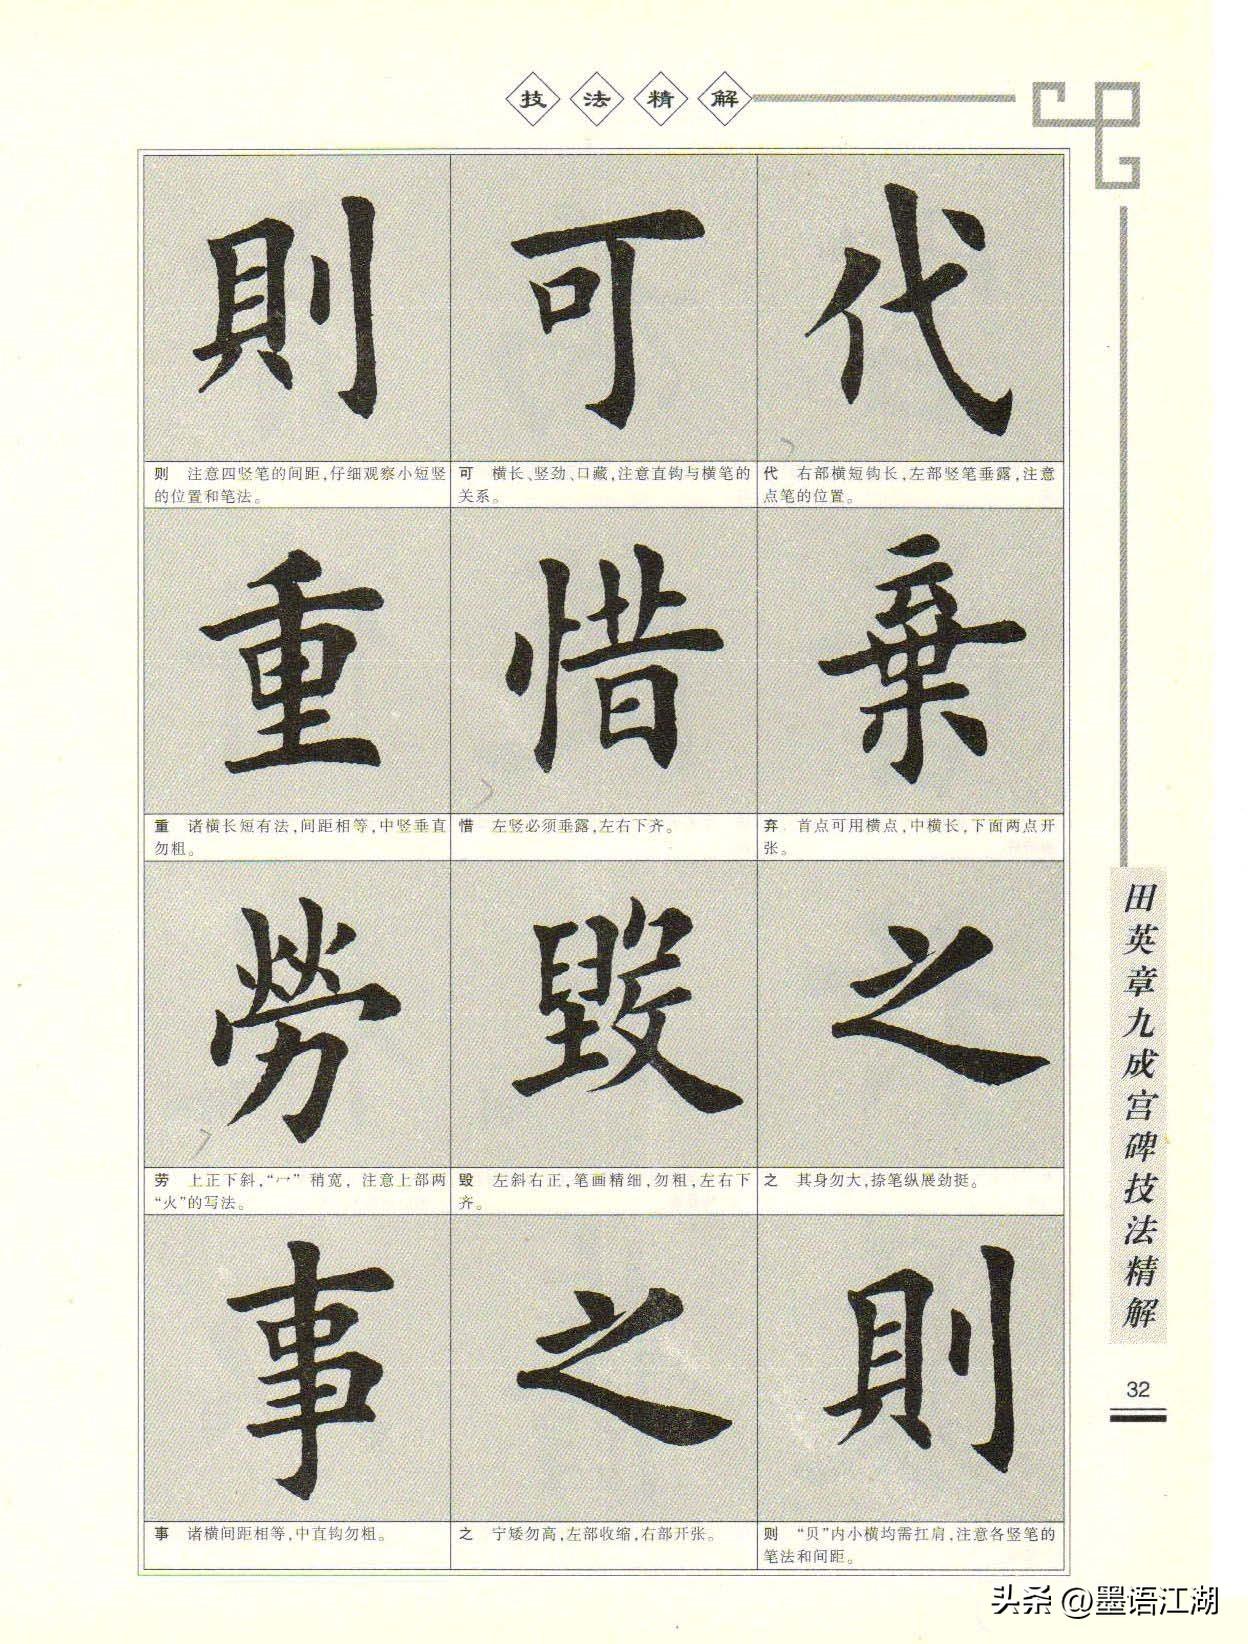 技法精解
則
可
代
则 注意四竖笔的间距,仔细观察小短竖
的位置和笔法。
可 横长、竖劲、口藏,注意直钩与横笔的
关系。
代 右部横短钩长,左部竖笔垂露,注意
点笔的位置。
重
惜
棄
重 诸横长短有法,间距相等,中竖垂直
勿粗。
惜 左竖必须垂露,左右下齐。
弃 首点可用横点,中横长,下面两点开
张。
勞
毀
之
劳 上正下斜,“冖”稍宽,注意上部两
“火”的写法。
毁 左斜右正,笔画精细,勿粗,左右下
齐。
之 其身勿大,捺笔纵展劲挺。
事
之
則
事 诸横间距相等,中直钩勿粗。
之 宁矮勿高,左部收缩,右部开张。
则 “贝”内小横均需扛肩,注意各竖笔的
笔法和间距。
田英章九成宫碑技法精解
32
头条 @墨语江湖